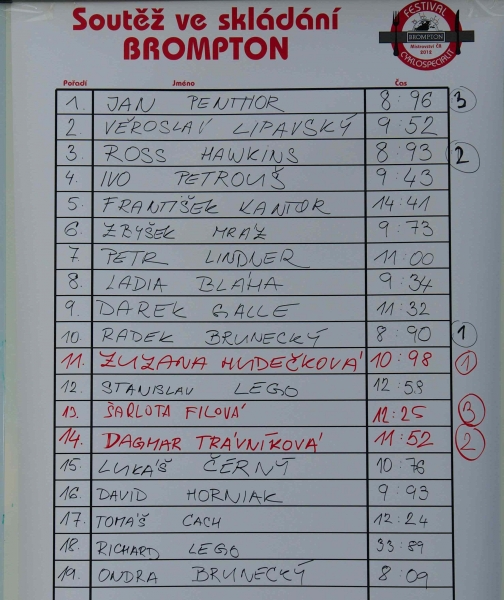 Soutěž ve skládání
BROMPTON
FESTIVAL
BROMPTON
Mistrovství ČR
CYKLOSPECIALIT
Pořadí Jméno Čas
1. JAN PENTHOR 8:96 3
2. VĚROSLAV LIPAVSKÝ 9:52
3. ROSS HAWKINS 8:93 2
4. IVO PETROUŠ 9:43
5. FRANTIŠEK KANTOR 14:41
6. ZBYŠEK MRÁZ 9:73
7. PETR LINDNER 11:00
8. LADIA BLÁHA 9:34
9. DAREK GALLE 11:32
10. RADEK BRUNECKÝ 8:90 1
11. ZUZANA HUDEČKOVÁ 10:98 1
12. STANISLAV LEGO 12:59
13. ŠARLOTA FILOVÁ 12:25 3
14. DAGMAR TRÁVNÍKOVÁ 11:52 2
15. LUKÁŠ ČERNÝ 10:76
16. DAVID HORNIAK 9:93
17. TOMÁŠ CACH 12:24
18. RICHARD LEGO 33:89
19. ONDRA BRUNECKÝ 8:09